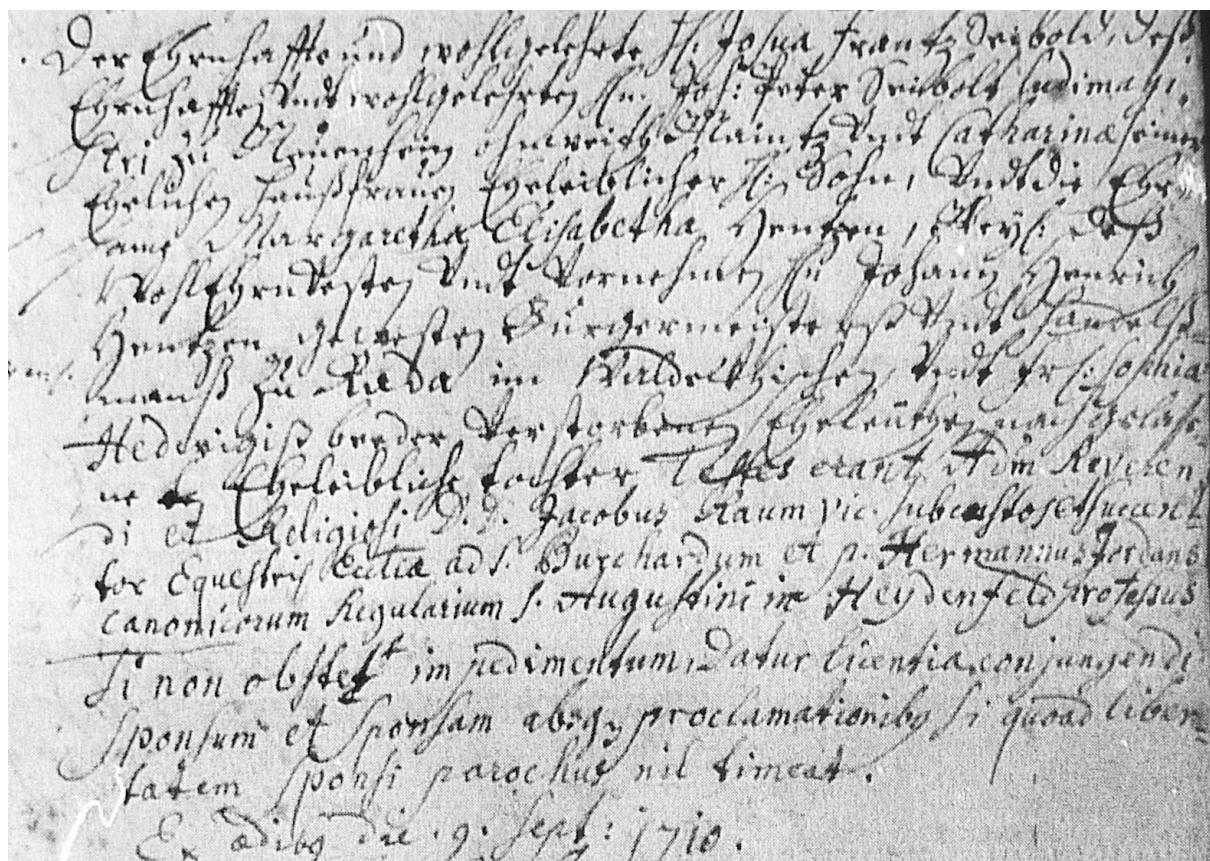 Der Ehrnhaffte und wohlgelehrte H. Josua Frantz Seybold, deß
Ehrnhafften undt wohlgelehrten Hn. Joh: Peter Seubolt ludimagi-
stri zu Neuenheim ohnweith Maintz undt Catharinæ seiner
Ehelichen haußfrauen Eheleiblicher H: Sohn, undt die Ehr-
same Margaretha Elisabetha Hentzen, deß
WohlEhrnvesten undt Vornehmen Hn Johann Henrich
Hentzen gewesten Burgermeisterß undt Handelß-
manß zu Rada im Waldekhischen, undt Fr: Sophia
Hedwigiß beeder Verstorbenen Eheleuthen nachgelaße-
ne Eheleibliche tochter Testes erant, Adm Reveren
di et Religiosi D. D. Jacobus Raum vic. subcustos et succent-
tor Equestris Ecclia ad S. Burchardum et p. Hermannus Jordans
Canonicorum Regularium S. Augustini in Heydenfeld professus
Si non obstet impedimentum, Datur licentia conjungendi
Sponsum et Sponsam absq proclamationibg si quoad liber-
tatem Sponsi parochus nil timeat.
Ex ædibg die . 9. Sept: 1710.